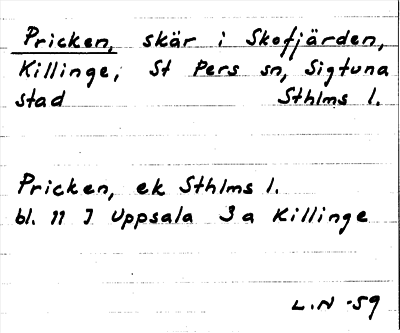 Pricken, skär i Skofjärden,
Killinge, St Pers sn, Sigtuna
stad Sthlms l.
Pricken, ek Sthlms l.
bl. 11 I Uppsala 3 a Killinge
L.N -59